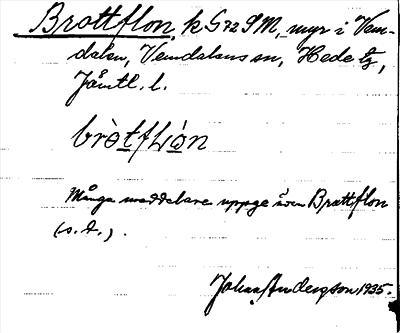 Brattflon, k G72 SM, myr i Vem-
dalen, Vemdalens sn, Hede tg,
Jämtl. l.
brò̀tfLòn
Många meddelare uppge även Brattflon
(s. d.).
Johan Andersson 1935.